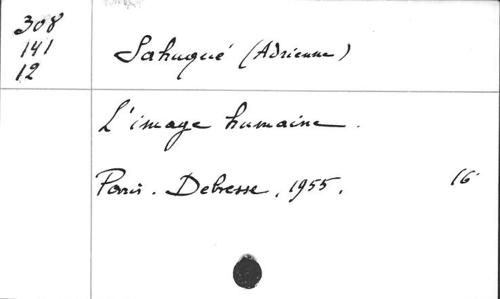 308
141
12
Sahuqué (Adrienne)
L'image humaine.
Paris. Debresse, 1955.
16